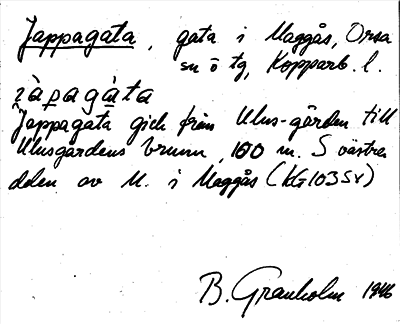 Jappagata, gata i Maggås, Orsa
sn ö tg, Kopparb. l.
Jappagata gick från Ulus-gården till
Ulusgårdens brunn, 100 m. S västra
delen av M. i Maggås (KG103Sv)
B. Granholm 1946